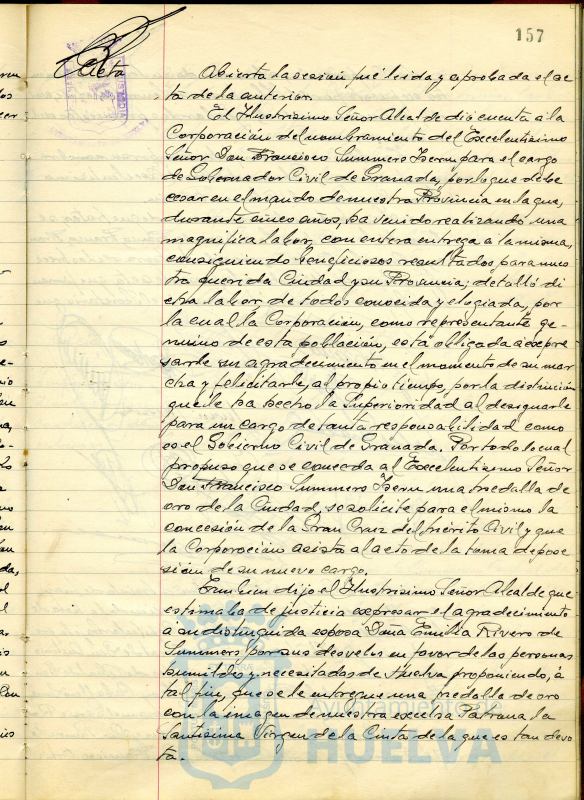 157
Acta
Abierta la sesión fué leida y aprobada el ac-
ta de la anterior.
El Ilustrisimo Señor Alcalde dió cuenta á la
Corporación del nombramiento del Excelentisimo
Señor Don Francisco Summers Isern para el cargo
de Gobernador Civil de Granada, por lo que debe
cesar en el mando de nuestra Provincia en la que,
durante cinco años, ha venido realizando una
magnifica labor, con entera entrega a la misma,
consiguiendo beneficiosos resultados para nues
tra querida Ciudad y su Provincia; detalló di
cha labor, de todos conocida y elogiada, por
la cual la Corporación, como representante ge-
nuino de esta población, está obligada a expre
sarle su agradecimiento en el momento de su mar
cha y felicitarle, al propio tiempo, por la distinción
que le ha hecho la Superioridad al designarle
para un cargo de tanta responsabilidad como
es el Gobierno Civil de Granada. Por todo lo cual
propuso que se conceda al Excelentisimo Señor
Don Francisco Summers Isern una medalla de
oro de la Ciudad, se solicite para el mismo la
concesión de la Gran Cruz del Mérito Civil y que
la Corporación asista al acto de la toma de pose
sión de su nuevo cargo.
Tambien dijo el Ilustrisimo Señor Alcalde que
estimaba de justicia expresar el agradecimiento
á su distinguida esposa Doña Emilia Rivero de
Summers por sus desvelos en favor de las personas
humildes y necesitadas de Huelva proponiendo, á
tal fin, que se le entregue una medalla de oro
con la imagen de nuestra excelsa Patrona la
Santisima Virgen de la Cinta de la que es tan devo
ta.
Ayuntamiento de
HUELVA